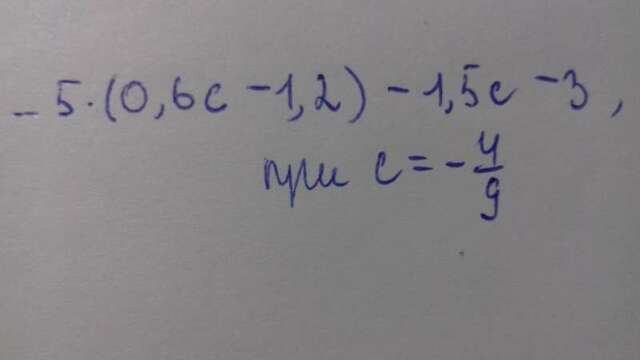 - 5·(0,6c - 1,2) - 1,5c - 3,
при c = - 4/9